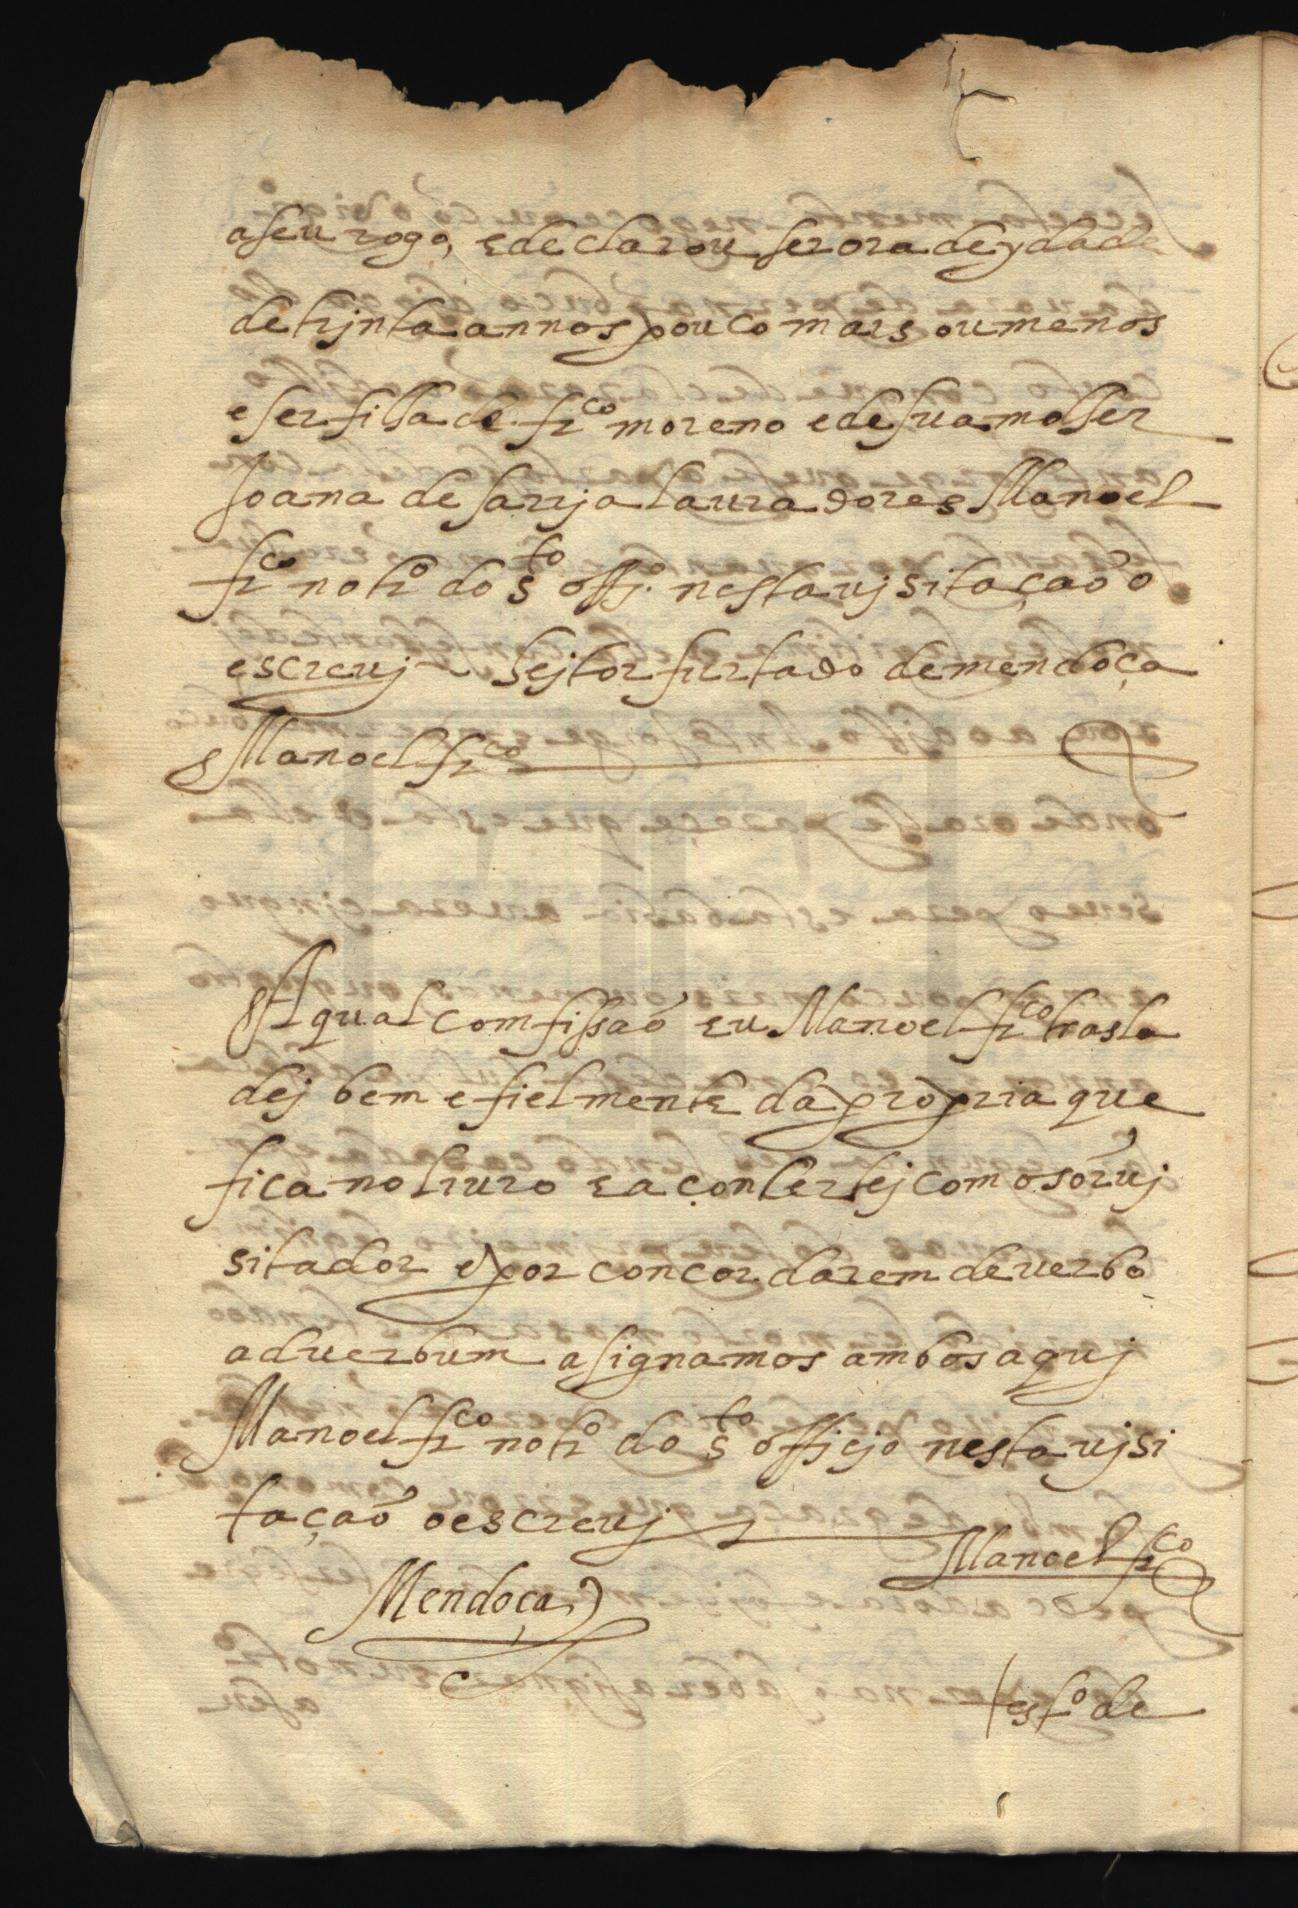 a seu rogo, e declarou ser ora de ydade
de trjnta annos pouco mais ou menos
e ser filha de fr.co moreno e de sua molher
Joana de sarrja lauradores Manoel
fr.co not.ro do s.to off.o nesta vjsitação o
escreuj hejtor furtado de mendoça
Manoel fr.co
A qual comfissaõ eu Manoel fr.co trasla
dej bem e fielmente da propria que
fica no liuro e a conçertej com o s.or vj
sitador e por concordarem de uerbo
ad uerbum asignamos ambos aquj
Manoel fr.co not.ro do s.to officjo nesta vjsi
taçaõ o escreuj
Manoel fr.co
Mendoça
test.o de